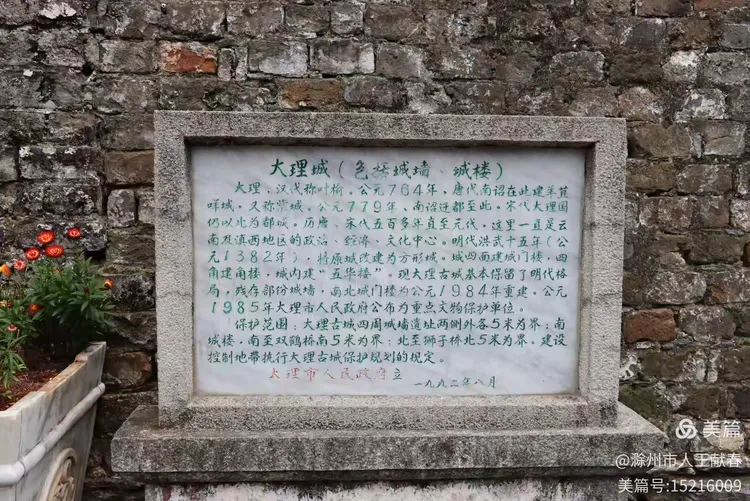 大理城(包括城墙、城楼)
大理,汉代称叶榆,公元764年,唐代南诏在此建羊苴
咩城。又称蒙城。公元779年、南诏迁都至此。宋代大理国
仍以此为都城。历唐、宋代五百多年直至元代,这里一直是云
南及滇西地区的政治、经济、文化中心。明代洪武十五年(公
元1382年),将原城改建为方形城。城四面建城门楼,四
角建角楼,城内建“五华楼”。现大理古城基本保留了明代格
局,残存部份城墙,南北城门楼为公元1984年重建。公元
1985年大理市人民政府公布为重点文物保护单位。
保护范围:大理古城四周城墙遗址两侧外各5米为界;南
城楼,南至双鹤桥南5米为界;北至狮子桥北5米为界。建设
控制地带执行大理古城保护规划的规定。
大理市人民政府立
一九九二年八月
美篇
@滁州市人王献春
美篇号:15216009